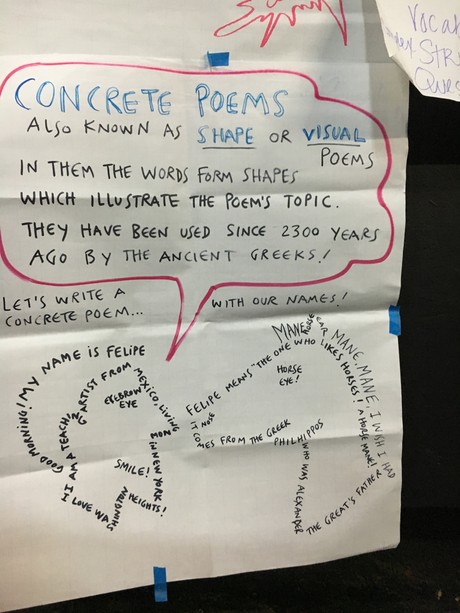 Vocab
STR
Ques
CONCRETE POEMS
ALSO KNOWN AS SHAPE OR VISUAL
POEMS
IN THEM THE WORDS FORM SHAPES
WHICH ILLUSTRATE THE POEM'S TOPIC.
THEY HAVE BEEN USED SINCE 2300 YEARS
AGO BY THE ANCIENT GREEKS!
LET'S WRITE A
CONCRETE POEM...
WITH OUR NAMES!
GOOD MORNING! MY NAME IS FELIPE
I AM A TEACHING ARTIST FROM MEXICO, LIVING
NOW IN NEW YORK
EYEBROW
EYE
SMILE!
I LOVE WASHINGTON HEIGHTS!
FELIPE MEANS "THE ONE WHO LIKES HORSES!
HORSE
EYE!
NOSE
IT COMES FROM THE GREEK PHILHIPPOS
WHO WAS ALEXANDER THE GREAT'S FATHER
HORSE
EAR
MANE MANE, MANE, I WISH I HAD
A HORSE MANE!